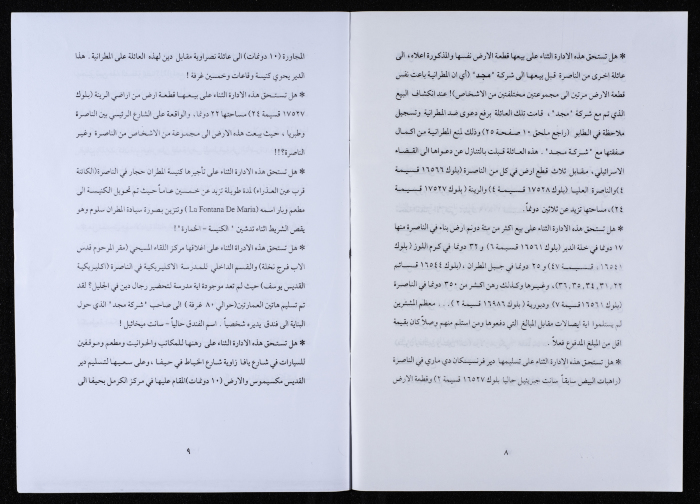 * هل تستحق هذه الادارة الثناء على بيعها قطعة الارض نفسها والمذكورة اعلاه، الى
عائلة اخرى من الناصرة قبل بيعها الى شركة "مجد" (أي ان المطرانية باعت نفس
قطعة الارض مرتين الى مجموعتين مختلفتين من الاشخاص)! عند انكشاف البيع
الذي تم مع شركة "مجد"، قامت تلك العائلة برفع دعوى ضد المطرانية وتسجيل
ملاحظة في الطابو (راجع ملحق ١٠ صفحة ٢٥) وذلك لمنع المطرانية من اكمال
صفقتها مع "شركة مجد". هذه العائلة قبلت بالتنازل عن دعواها الى القضاء
الاسرائيلي، مقابل ثلاث قطع ارض في كل من الناصرة (بلوك ١٦٥٦٦ قسيمة
٤)والناصرة العليا (بلوك ١٧٥٢٨ قسيمة ٤) والرينة (بلوك ١٧٥٢٧ قسيمة
٢٤)، مساحتها تزيد عن ثلاثين دونماً.
* هل تستحق هذه الادارة الثناء على بيع اكثر من مئة دونم ارض بناء في الناصرة منها
١٧ دونما في خلة الدير (بلوك ١٦٥٦١ قسيمة ٦) و ٣٢ دونما في كرم اللوز (بلوك
١٦٥٤١، قسيمة ٤٧) و ٢٥ دونما في جبل المطران، (بلوك ١٦٥٤٤ قسائم
٢٢,٣١,٣٤,٣٥,٣٦)، وغيرها وكذلك رهن اكثر من ٣٥٠ دونما في الناصرة
(بلوك ١٦٥٦١ قسيمة ٧) ودبورية (بلوك ١٦٩٨٦ قسيمة ٢)... معظم المشترين
لم يستلموا اية ايصالات مقابل المبالغ التي دفعوها ومن استلم منهم وصلاً كان بقيمة
اقل من المبلغ المدفوع فعلاً.
* هل تستحق هذه الادارة الثناء على تسليمها دير فرنسيسكان دي ماري في الناصرة
(راهبات البيض سابقاً سانت جبريئيل حاليا بلوك ١٦٥٢٧ قسيمة ٢) وقطعة الارض
٨
المجاورة (١٠ دونمات) الى عائلة نصراوية مقابل دين لهذه العائلة على المطرانية. هذا
الدير يحوي كنيسة وقاعات وخمسين غرفة!
* هل تستحق هذه الادارة الثناء على بيعها قطعة ارض من اراضي الرينة (بلوك
١٧٥٢٧ قسيمة ٢٤) مساحتها ٢٢ دونما، والواقعة على الشارع الرئيسي بين الناصرة
وطبريا، حيث بيعت هذه الارض الى مجموعة من الاشخاص من الناصرة وغير
الناصرة؟!!
* هل تستحق هذه الادارة الثناء على تأجيرها كنيسة المطران حجار في الناصرة(الكائنة
قرب عين العذراء) لمدة طويلة تزيد عن خمسين عاماً حيث تم تحويل الكنيسة الى
مطعم وبار اسمه (La Fontana De Maria) وتتزين بصورة سيادة المطران سلوم وهو
يقص الشريط اثناء تدشين "الكنيسة - الخمارة"!
* هل تستحق هذه الادراة الثناء على اغلاقها مركز اللقاء المسيحي (مقر المرحوم قدس
الاب فرح نخلة) والقسم الداخلي للمدرسة الاكليريكية في الناصرة (اكليريكية
القديس يوسف) حيث لم تعد موجودة اية مدرسة لتحضير رجال دين في الجليل؟ لقد
تم تسليم هاتين العمارتين(حوالي ٨٠ غرفة) الى صاحب "شركة مجد" الذي حول
البناية الى فندق يديره شخصياً. اسم الفندق حالياً - سانت ميخائيل!
* هل تستحق هذه الادارة الثناء على رهنها للمكاتب والحوانيت ومطعم وموقفين
للسيارات في شارع يافا زاوية شارع الخياط في حيفا، وعلى سعيها لتسليم دير
القديس مكسيموس والارض (١٠ دونمات)المقام عليها في مركز الكرمل بحيفا الى
٩